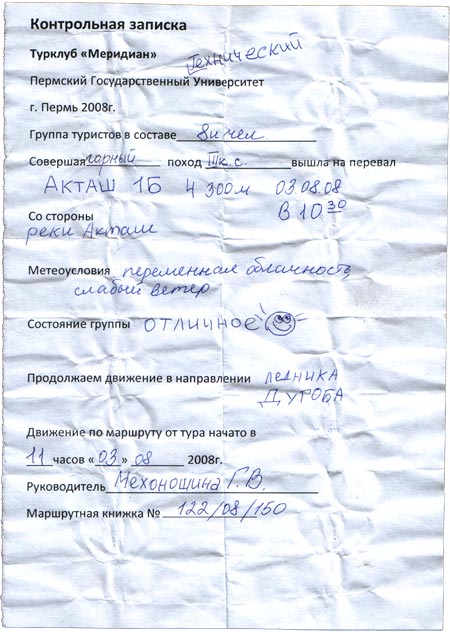 Контрольная записка
Турклуб «Меридиан»
Технический
Пермский Государственный Университет
г. Пермь 2008г.
Группа туристов в составе 8и чел.
Совершая горный поход III к.с. вышла на перевал
АКТАШ 1Б 4 300м 03.08.08
В 10 30
Со стороны
реки Акташ
Метеоусловия переменная облачность,
слабый ветер
Состояние группы ОТЛИЧНОЕ
Продолжаем движение в направлении ледника
ДУГОБА
Движение по маршруту от тура начато в
11 часов «03» 08 2008г.
Руководитель Мехоношина Г.В.
Маршрутная книжка № 122/08/150